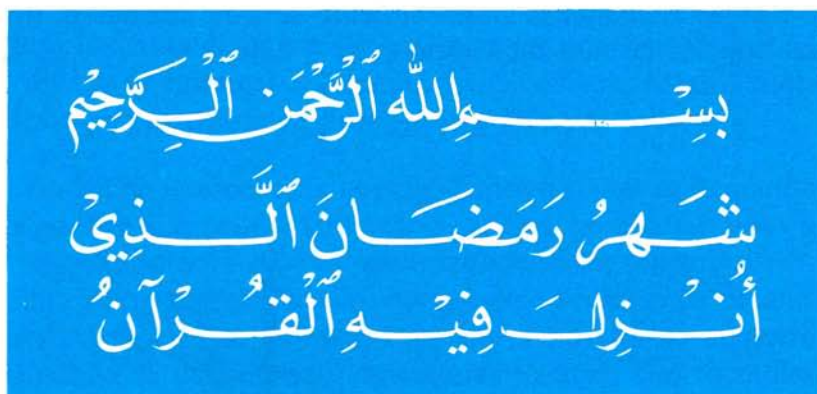 بِسْمِ اللّٰهِ ٱلرَّحْمٰنِ ٱلرَّحِيْمِ
شَهرُ رَمَضَانَ ٱلَّذِيْ
أُنْزِلَ فِيْهِ ٱلْقُرْآنُ